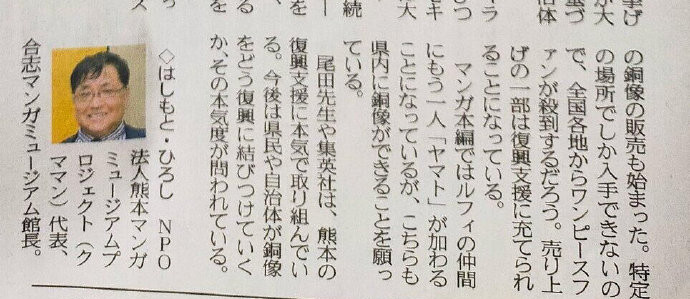 挙げ
が大
基づ
治体
マラ
の銅像の販売も始まった。特定
の場所でしか入手できないの
で、全国各地からワンピースフ
ァンが殺到するだろう。売り上
げの一部は復興支援に充てられ
ることになっている。
マンガ本編ではルフィの仲間
にもう一人「ヤマト」が加わる
ことになっているが、こちらも
県内に銅像ができることを願っ
ている。
尾田先生や集英社は、熊本の
復興支援に本気で取り組んでい
る。今後は県民や自治体が銅像
をどう復興に結びつけていく
か、その本気度が問われている。
◇はしもと・ひろし NPO
法人熊本マンガ
ミュージアムプ
ロジェクト(ク
ママン)代表、
合志マンガミュージアム館長。